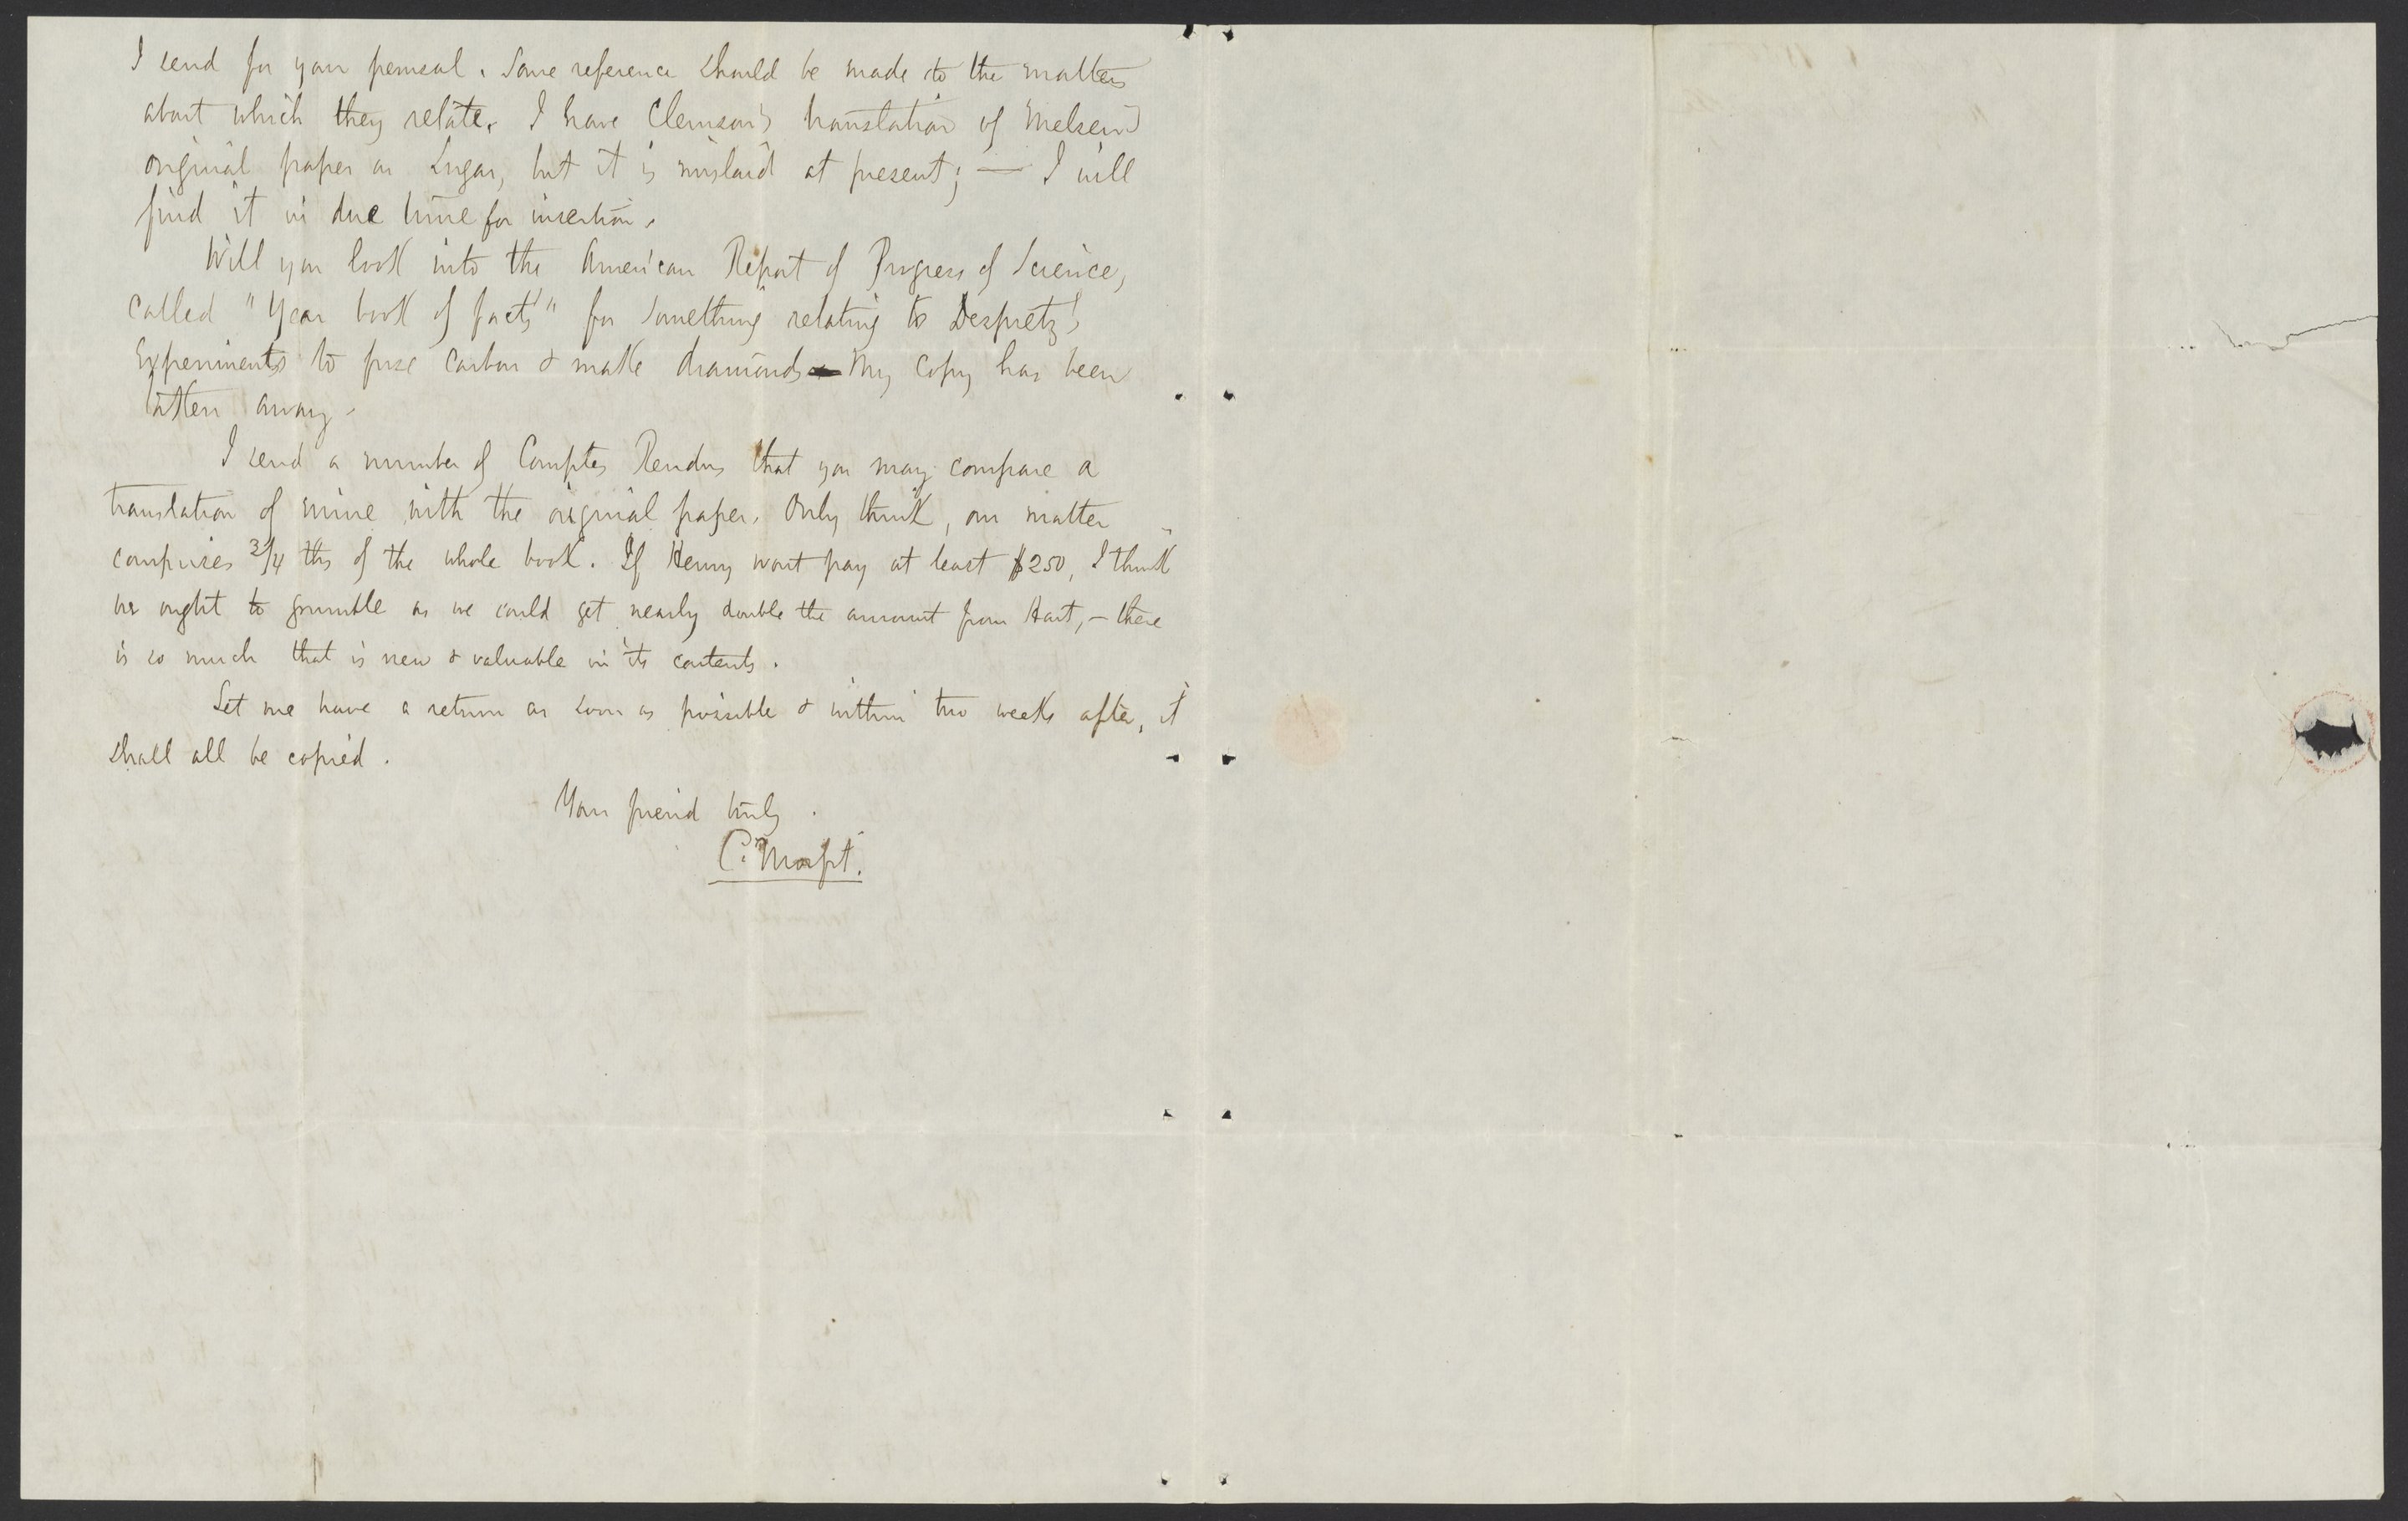 I send for your perusal. Some reference should be made to the matters
about which they relate. I have Clemson's translation of Melsen's
original paper on Sugar, but it is mislaid at present; — I will
find it in due time for insertion.
Will you look into the American Report of Progress of Science,
called "Year book of facts" for something relating to Despretz's
Experiments to fuse carbon & make diamonds My copy has been
taken away.
I send a number of Comptes Rendus that you may compare a
translation of mine with the original paper. Only think, our matter
comprises 3/4 ths of the whole book. If Henry wont pay at least $250, I think
we ought to grumble as we could get nearly double the amount from Hart, — there
is so much that is new & valuable in its contents.
Let me have a return as soon as possible & within two weeks after, it
shall all be copied.
Your friend truly
C. Morfit.